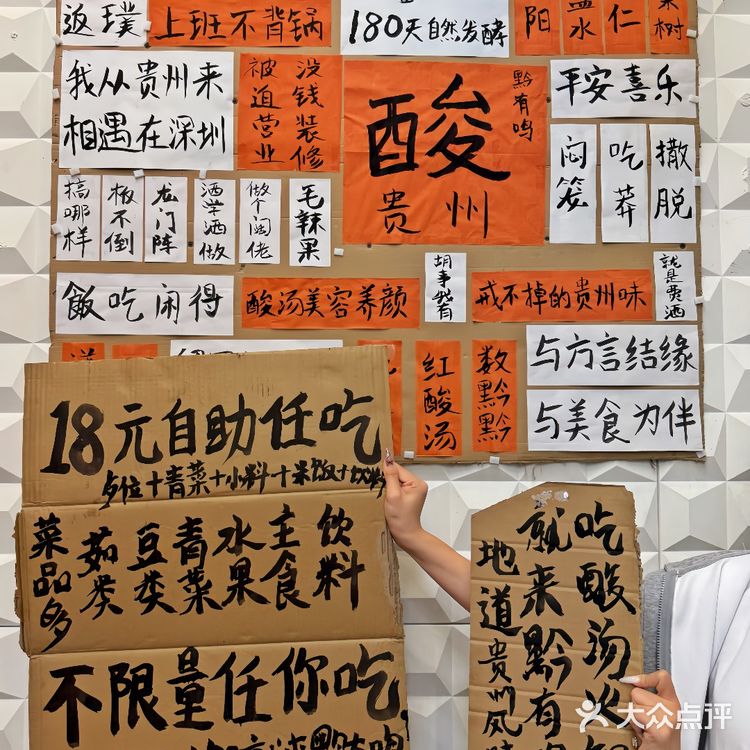 返璞
上班不背锅
180天自然发酵
阳
盐水
仁
果树
我从贵州来
相遇在深圳
被迫营业
没钱装修
酸
贵州
黔有鸣
平安喜乐
闷笼
吃莽
撒脱
搞哪样
板不倒
龙门阵
洒学洒做
做个闹佬
毛辣果
飯吃闲得
酸汤美容养颜
胡事我有
戒不掉的贵州味
就是贵洒
红酸汤
数黔黔
与方言结缘
与美食为伴
18元自助任吃
夕位+青菜+小料+米饭+饮料
菜品多
菇类
豆类
青菜
水果
主食
饮料
不限量任你吃
吃酸汤火
就来黔有
地道贵州风味
大众点评